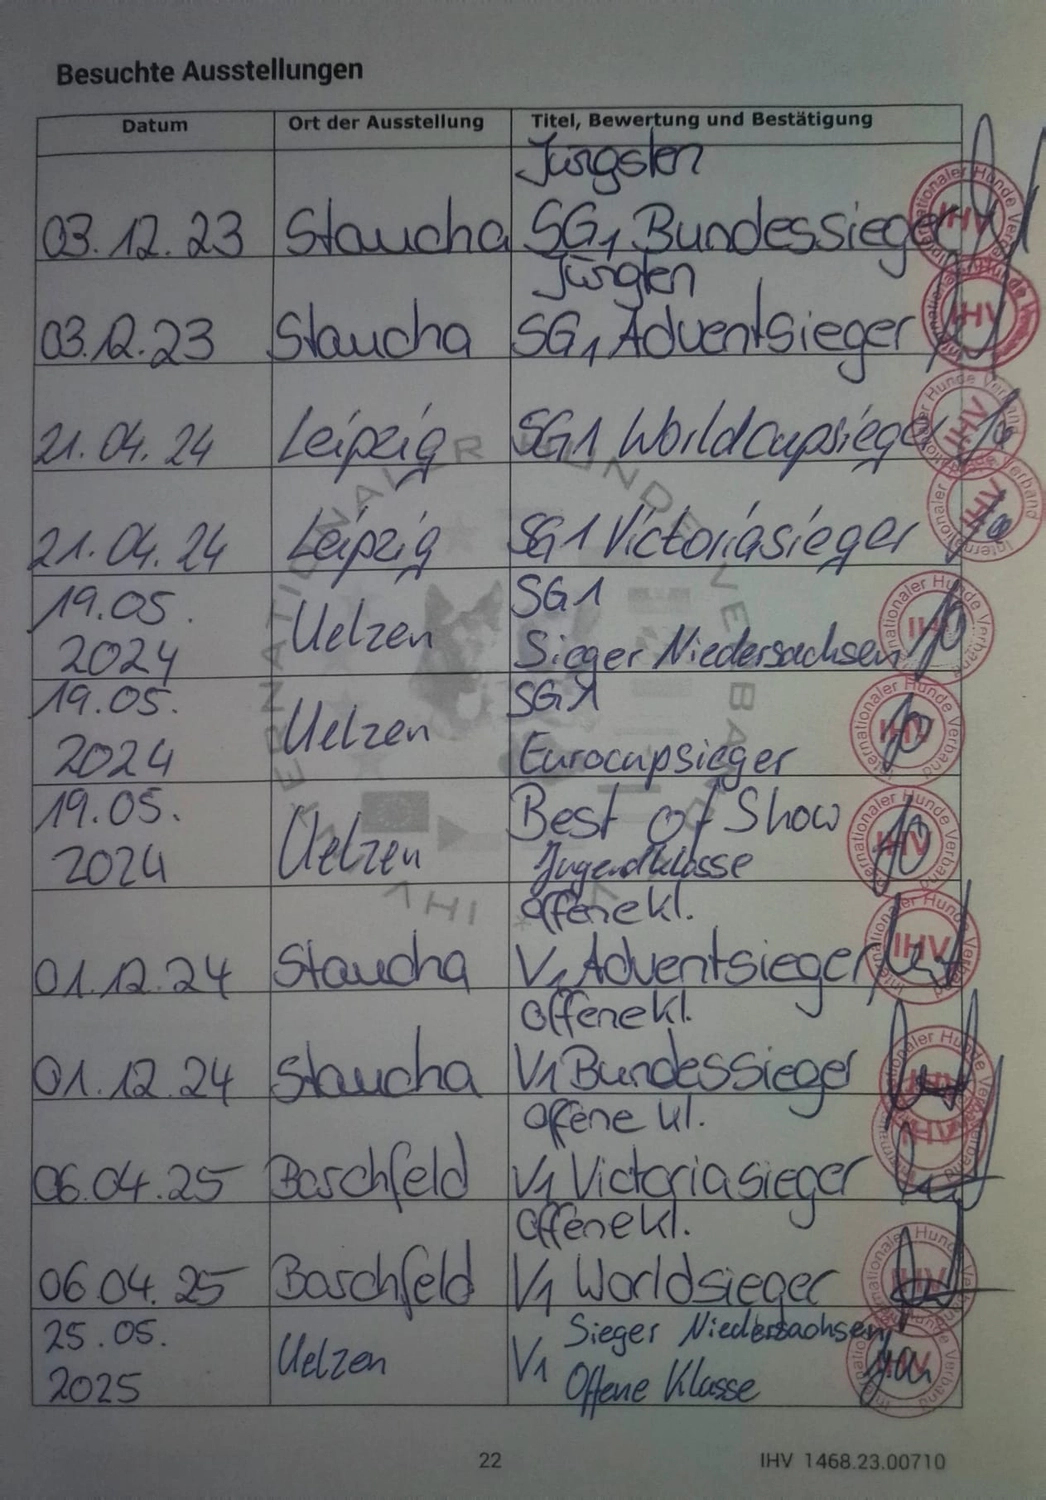 Besuchte Ausstellungen
Datum Ort der Ausstellung Titel, Bewertung und Bestätigung
Jüngsten
03.12.23 Staucha SG1 Bundessieger
Jüngten
03.12.23 Staucha SG1 Adventsieger
21.04.24 Leipzig SG1 Worldcupsieger
21.04.24 Leipzig SG1 Victoriasieger
19.05. SG1
2024 Uelzen Sieger Niedersachsen
19.05. SG1
2024 Uelzen Eurocupsieger
19.05. Best of Show
2024 Uelzen Jugendklasse
offene kl.
01.12.24 Staucha V1 Adventsieger
offene kl.
01.12.24 Staucha V1 Bundessieger
offene kl.
06.04.25 Boschfeld V1 Victoriasieger
offene kl.
06.04.25 Boschfeld V1 Worldsieger
25.05. Sieger Niedersachsen
2025 Uelzen V1 Offene Klasse
INTERNATIONALER HUNDE VERBAND * IHV *
Internationaler Hunde Verband
IHV
22 IHV 1468.23.00710